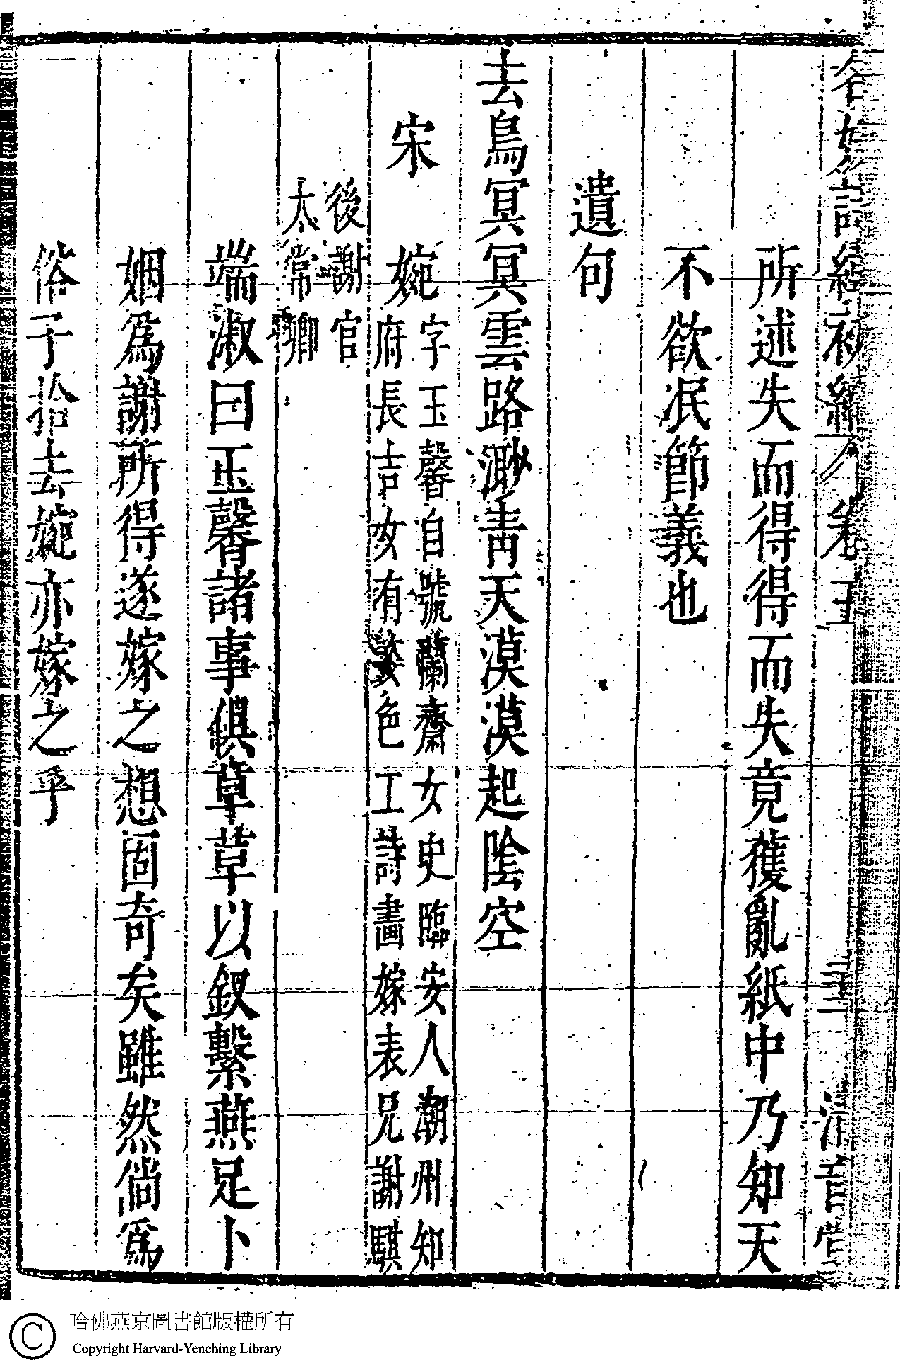 名媛詩緯初編 卷五 清音堂
所述失而得得而失竟獲亂紙中乃知天
不欲泯節義也
遺句
去鳥冥冥雲路渺青天漠漠起陰空
宋婉字玉馨自號蘭齋女史臨安人潮州知
府長吉女有姿色工詩畫嫁表兄謝騏
後謝官
太常卿
端淑曰玉馨諸事俱草草以釵繫燕足卜
姻為謝所得遂嫁之想固奇矣雖然倘為
俗子拾去婉亦嫁之乎
哈佛燕京圖書館版權所有
Copyright Harvard-Yenching Library